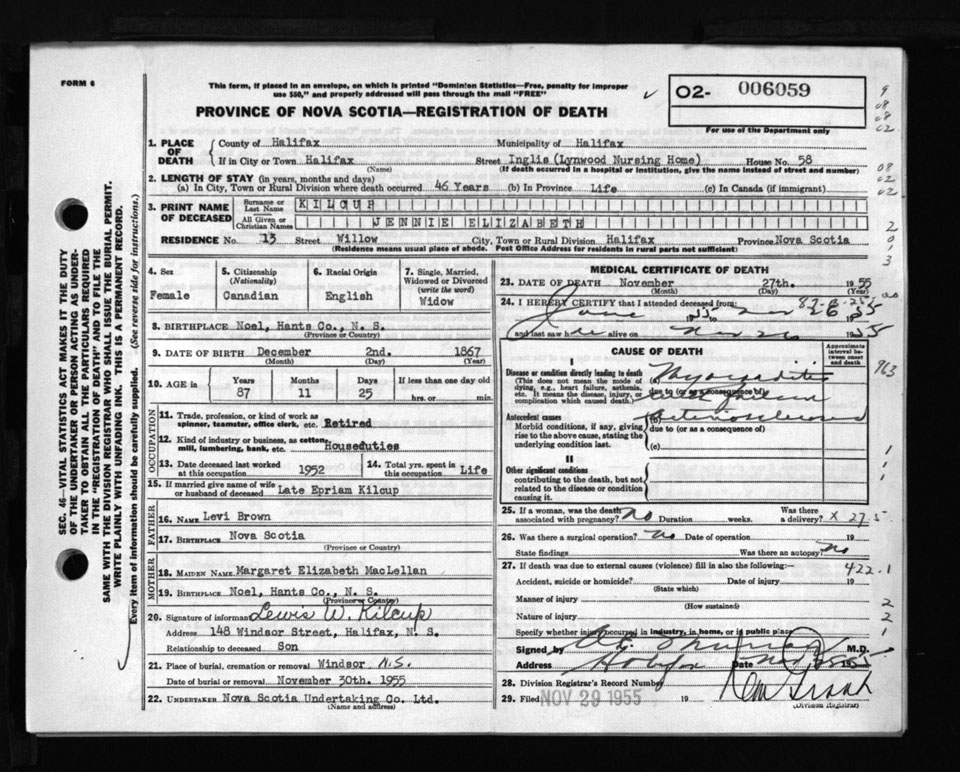 FORM 6
This form, if placed in an envelope, on which is printed "Dominion Statistics—Free, penalty for improper
use $50," and properly addressed will pass through the mail "FREE"
PROVINCE OF NOVA SCOTIA—REGISTRATION OF DEATH
O2- 006059
For use of the Department only
1. PLACE OF DEATH
County of Halifax Municipality of Halifax
If in City or Town Halifax Street Inglis (Lynwood Nursing Home) House No. 58
(Name) (If death occurred in a hospital or institution, give the name instead of street and number)
2. LENGTH OF STAY (in years, months and days)
(a) In City, Town or Rural Division where death occurred 46 Years (b) In Province Life (c) In Canada (if immigrant)
3. PRINT NAME OF DECEASED
Surname or Last Name KILCUP
All Given or Christian Names JENNIE ELIZABETH
RESIDENCE No. 13 Street Willow City, Town or Rural Division Halifax Province Nova Scotia
(Residence means usual place of abode. Post Office Address for residents in rural parts not sufficient)
4. Sex
Female
5. Citizenship
(Nationality)
Canadian
6. Racial Origin
English
7. Single, Married,
Widowed or Divorced
(write the word)
Widow
8. BIRTHPLACE Noel, Hants Co., N. S.
(Province or Country)
9. DATE OF BIRTH December 2nd. 1867
(Month) (Day) (Year)
10. AGE in
Years Months Days If less than one day old
87 11 25 hrs. or min.
OCCUPATION
11. Trade, profession, or kind of work as
spinner, teamster, office clerk, etc. Retired
12. Kind of industry or business, as cotton
mill, lumbering, bank, etc. Houseduties
13. Date deceased last worked
at this occupation 1952
14. Total yrs. spent in
this occupation Life
15. If married give name of wife
or husband of deceased Late Epriam Kilcup
FATHER
16. NAME Levi Brown
17. BIRTHPLACE Nova Scotia
(Province or Country)
MOTHER
18. MAIDEN NAME Margaret Elizabeth MacLellan
19. BIRTHPLACE Noel, Hants Co., N. S.
(Province or Country)
20. Signature of informant Lewis W. Kilcup
Address 148 Windsor Street, Halifax, N. S.
Relationship to deceased Son
21. Place of burial, cremation or removal Windsor N.S.
Date of burial or removal November 30th. 1955
22. UNDERTAKER Nova Scotia Undertaking Co. Ltd.
(Name and address)
MEDICAL CERTIFICATE OF DEATH
23. DATE OF DEATH November 27th. 1955
(Month) (Day) (Year)
24. I HEREBY CERTIFY that I attended deceased from:
June
and last saw her alive on Nov 1955
CAUSE OF DEATH
Approximate interval between onset and death
I
Disease or condition directly leading to death
(This does not mean the mode of
dying, e.g., heart failure, asthenia,
etc. It means the disease, injury, or
complication which caused death.)
(a) Myocarditis
due to (or as a consequence of)
Antecedent causes
Morbid conditions, if any, giving
rise to the above cause, stating the
underlying condition last.
(b) Arteriosclerosis
due to (or as a consequence of)
(c)
II
Other significant conditions
contributing to the death, but not
related to the disease or condition
causing it.
25. If a woman, was the death
associated with pregnancy? No Duration weeks. Was there
a delivery? x
26. Was there a surgical operation? No Date of operation 19
State findings Was there an autopsy? No
27. If death was due to external causes (violence) fill in also the following:—
422.1
Accident, suicide or homicide? Date of injury 19
(State which)
Manner of injury
(How sustained)
Nature of injury
Specify whether injury occurred in industry, in home, or in public place
Signed by M.D.
Address Halifax Date Nov 1955
28. Division Registrar's Record Number
29. Filed NOV 29 1955 19
(Division Registrar)
SEC. 46—VITAL STATISTICS ACT MAKES IT THE DUTY
OF THE UNDERTAKER OR PERSON ACTING AS UNDER-
TAKER TO OBTAIN ALL THE PARTICULARS REQUIRED
IN THE "REGISTRATION OF DEATH" AND TO FILE THE
SAME WITH THE DIVISION REGISTRAR WHO SHALL ISSUE THE BURIAL PERMIT.
WRITE PLAINLY WITH UNFADING INK. THIS IS A PERMANENT RECORD.
Every item of information should be carefully supplied. (See reverse side for instructions.)